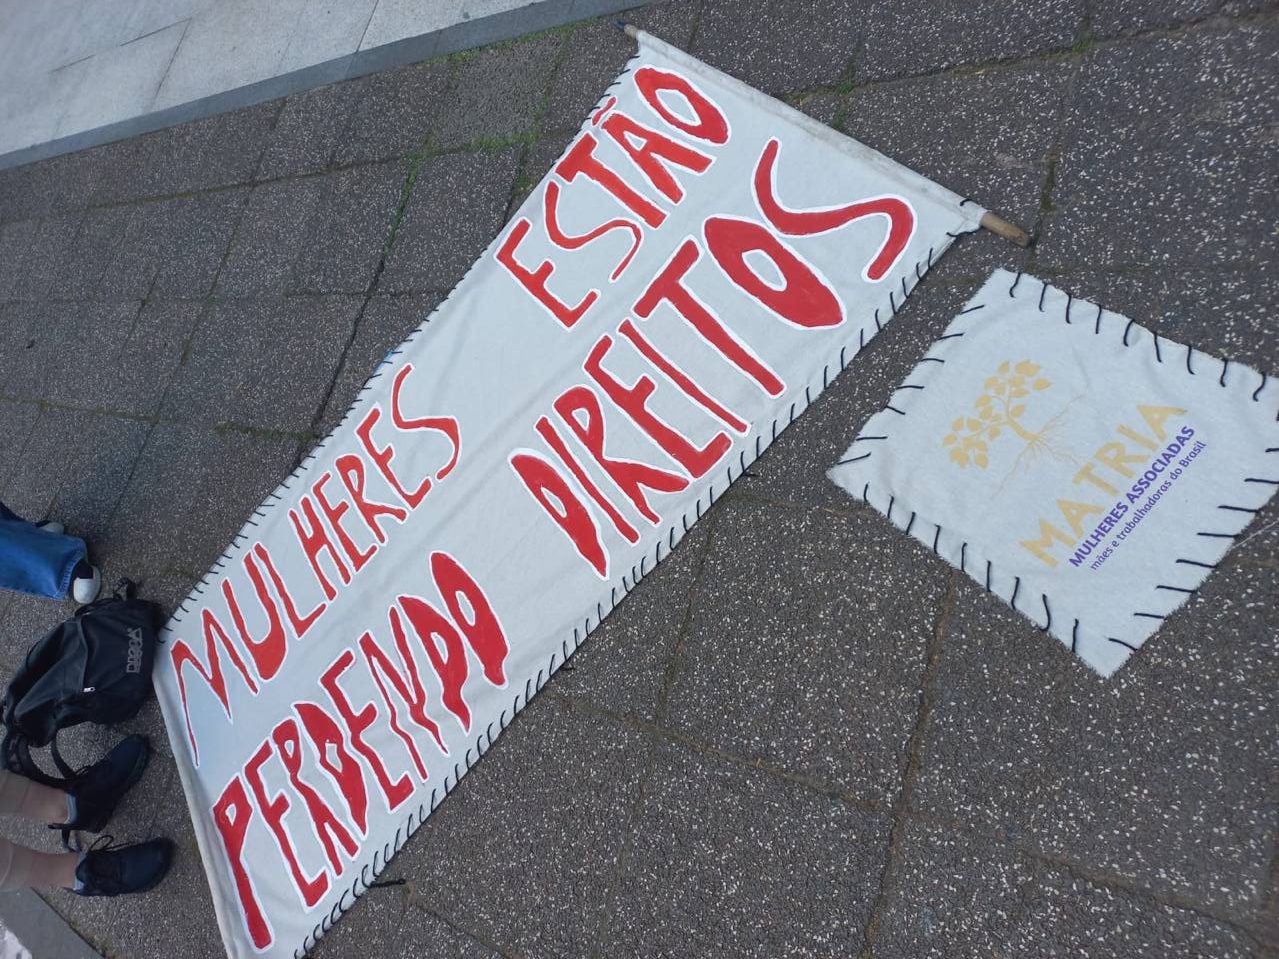 MULHERES ESTÃO
PERDENDO DIREITOS
MATRIA
MULHERES ASSOCIADAS
mães e trabalhadoras do Brasil